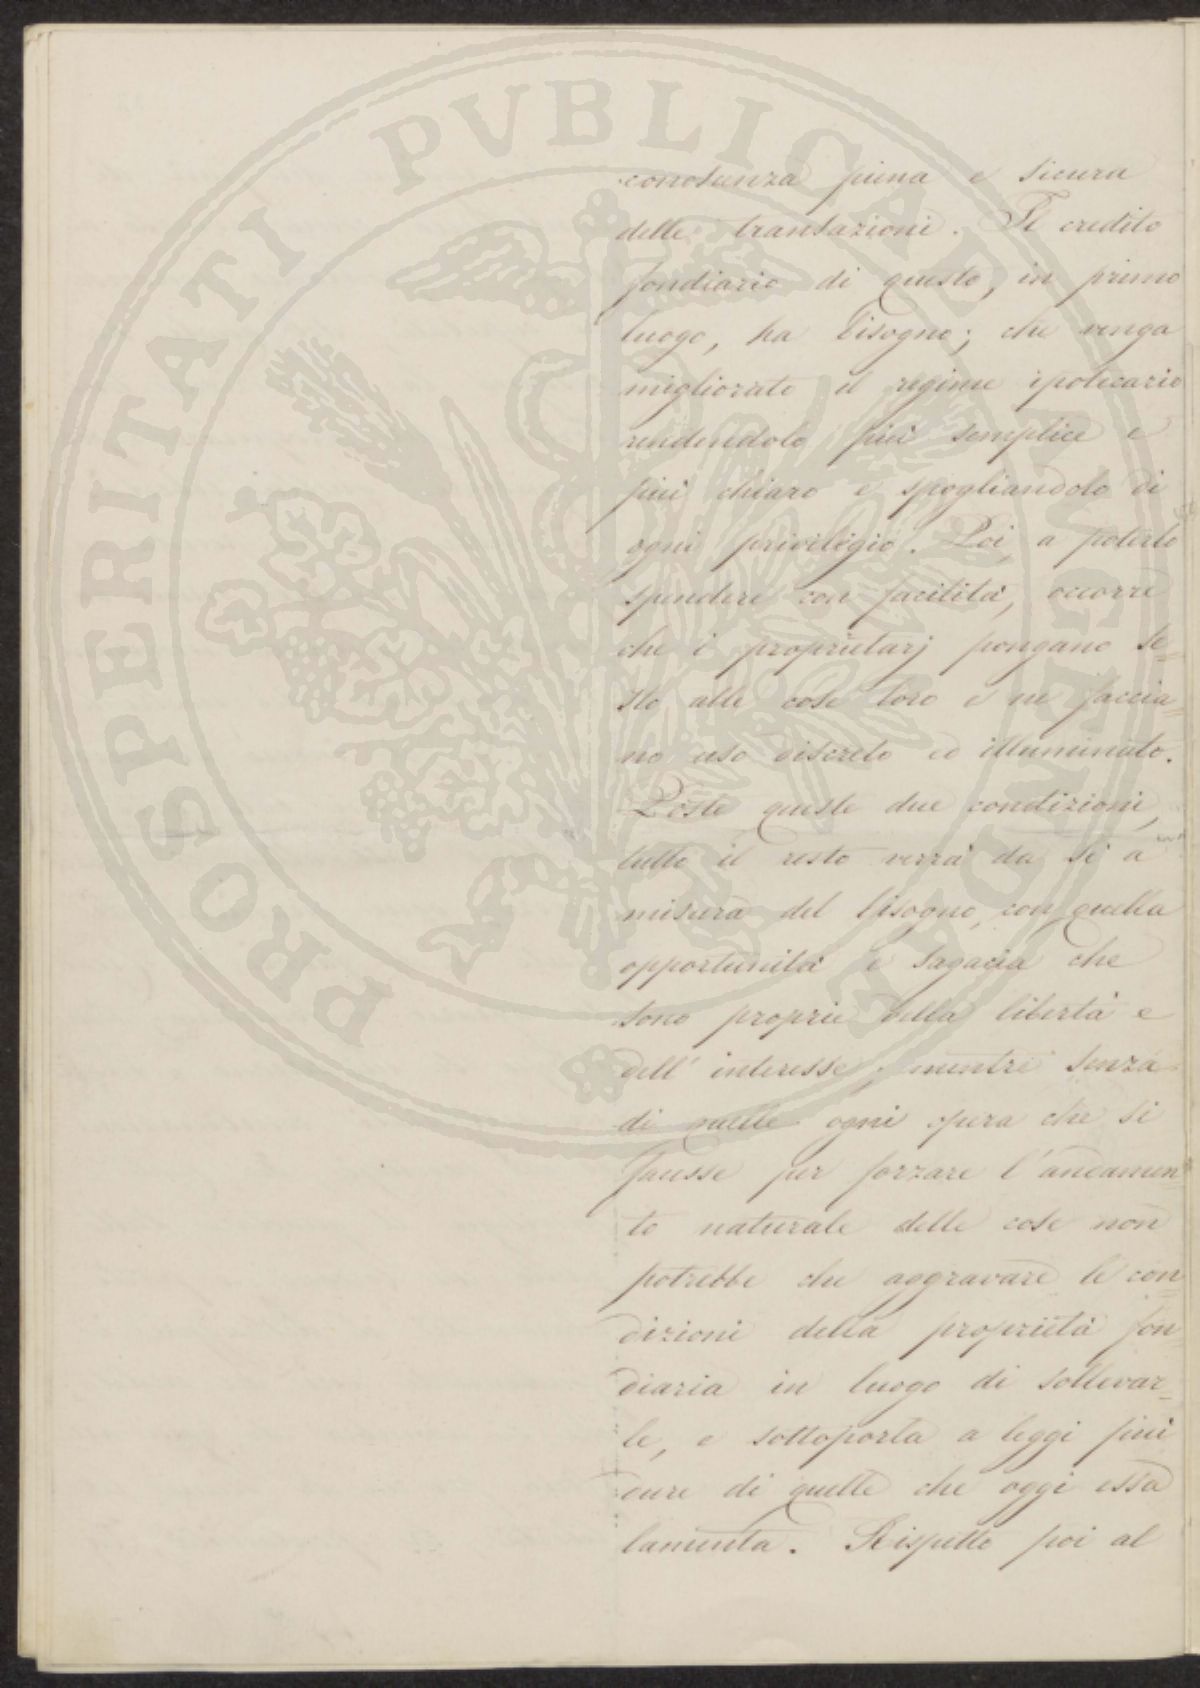 conoscenza piena e sicura
delle transazioni. Il credito
fondiario di questo, in primo
luogo, ha bisogno; che venga
migliorato il regime ipotecario
rendendolo più semplice e
più chiaro e spogliandolo di
ogni privilegio. Poi, a poterlo
spendere con facilità, occorre
che i proprietarj pongano se=
sto alle cose loro e ne faccia=
no uso discreto ed illuminato.
Poste queste due condizioni,
tutto il resto verrà da sé a
misura del bisogno, con quella
opportunità e sagacia che
sono proprie della libertà e
dell' interesse; mentre senza
di quelle ogni opera che si
facesse per forzare l'andamen=
to naturale delle cose non
potrebbe che aggravare le con=
dizioni della proprietà fon=
diaria in luogo di sollevar=
le, e sottoporla a leggi più
dure di quelle che oggi essa
lamenta. Rispetto poi al
PROSPERITATI PVBLICAE AVGENDAE